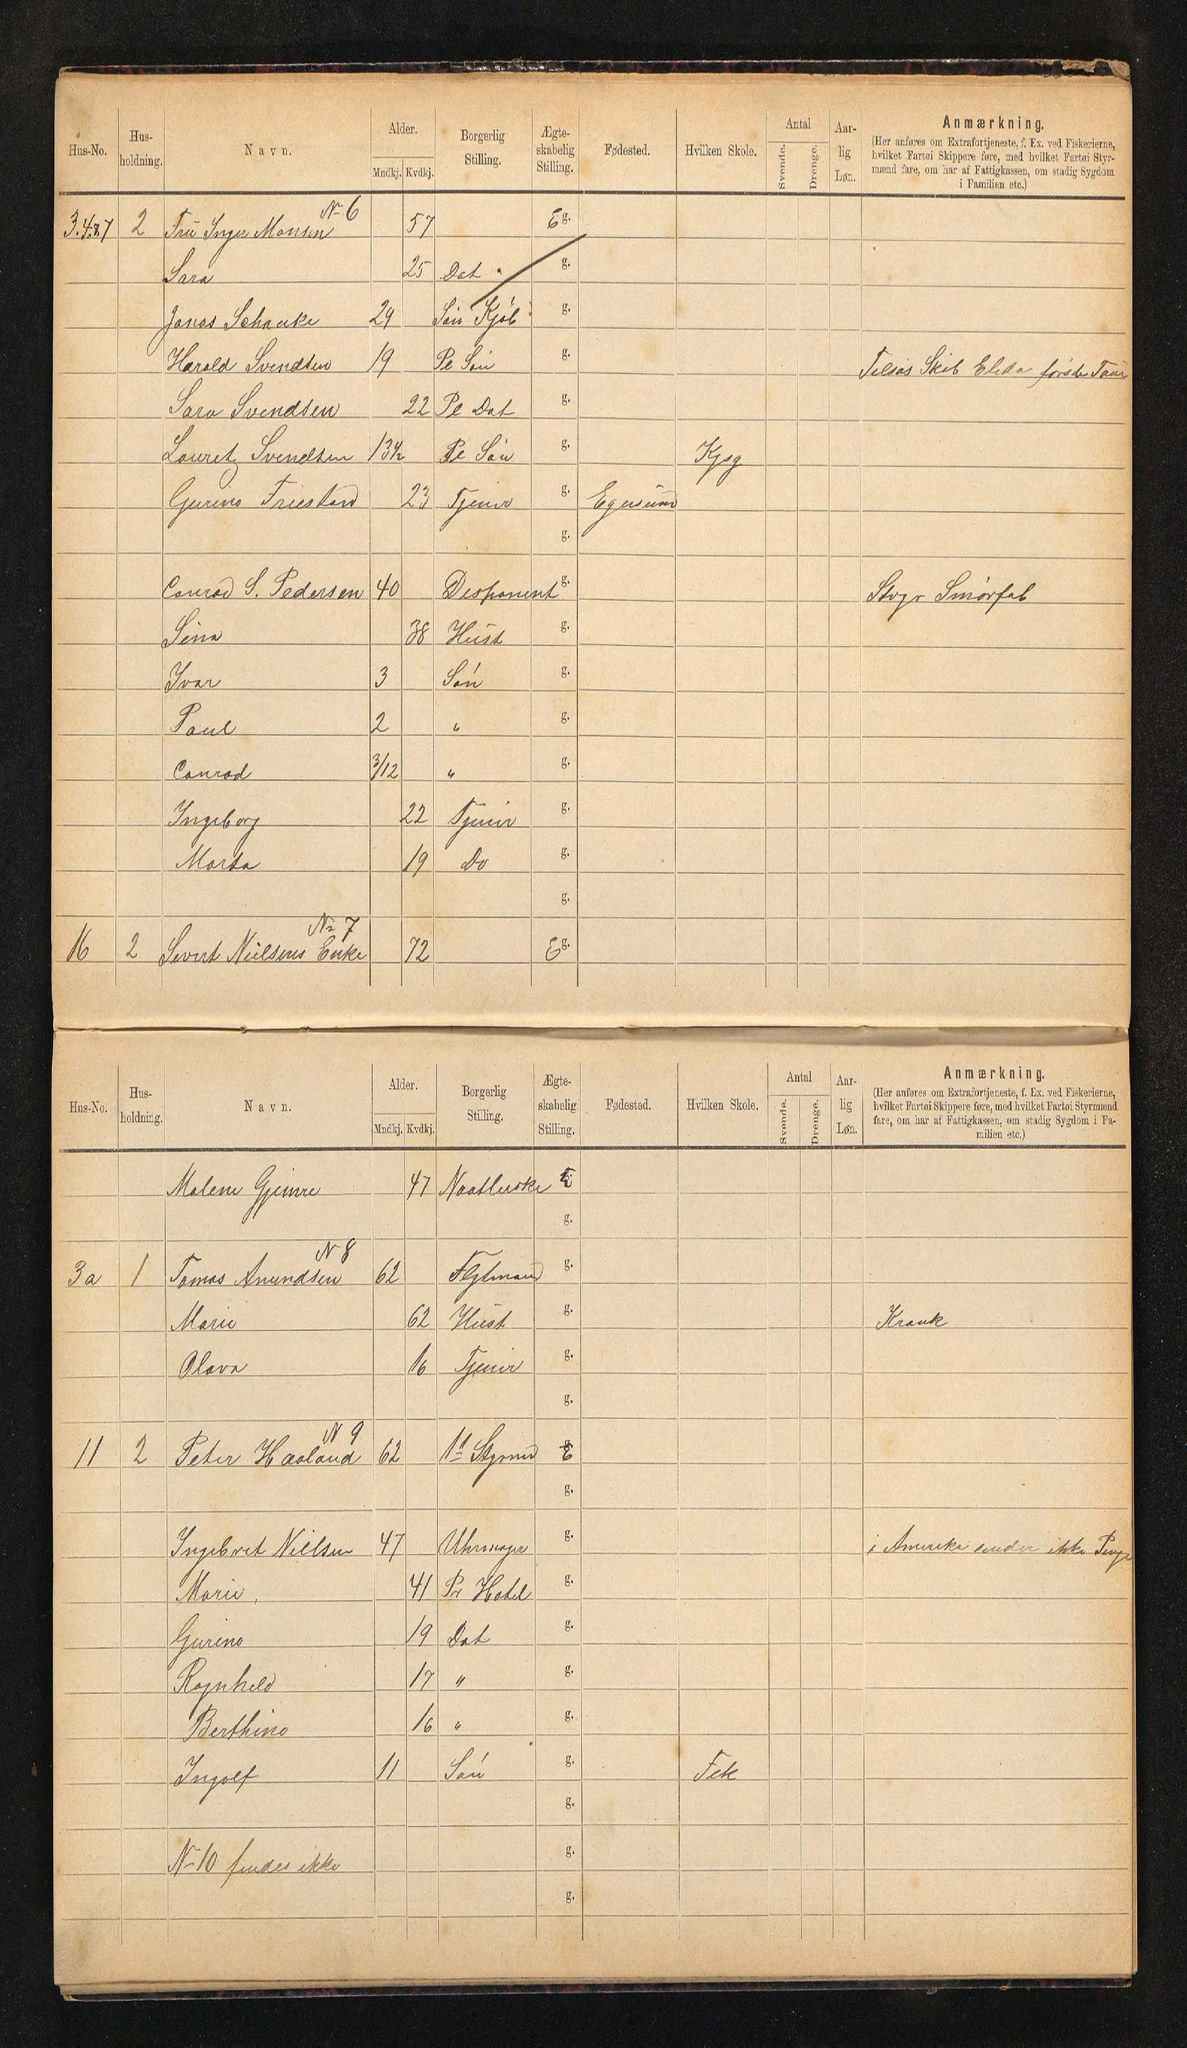 Hus-No. Hus-holdning. Navn. Alder. Mndkj. Kvdkj. Borgerlig Stilling. Ægte-skabelig Stilling. Fødested. Hvilken Skole. Antal Svende. Drenge. Aar-lig Løn. Anmærkning.
(Her anføres om Extrafortjeneste, f. Ex. ved Fiskerierne,
hvilket Fartøi Skippere føre, med hvilket Fartøi Styr-
mænd fare, om har af Fattigkassen, om stadig Sygdom
i Familien etc.)
No 6
3.4.&7 2 Fru Inger Monsen 57 E g.
Sara 25 Dat " g.
Jonas Schanke 29 Søn Kjøb g.
Harald Svendsen 19 Pl Søn g. Skib Elida første
Sara Svendsen 22 Pl Dat g.
Lauretz Svendsen 13½ Pl Søn g. Kpsg
Gurine Friestad 23 Tjener g. Egersund
g.
Conrad S. Pedersen 40 Disponent g. Stvgr Smørfab
Sina 38 Hust g.
Ivar 3 Søn g.
Paul 2 " g.
Conrad 3/12 " g.
Ingeborg 22 Tjener g.
Marta 19 Do g.
g.
No 7
16 2 Sivert Nielsens Enke 72 E g.
Hus-No. Hus-holdning. Navn. Alder. Mndkj. Kvdkj. Borgerlig Stilling. Ægte-skabelig Stilling. Fødested. Hvilken Skole. Antal Svende. Drenge. Aar-lig Løn. Anmærkning.
(Her anføres om Extrafortjeneste, f. Ex. ved Fiskerierne,
hvilket Fartøi Skippere føre, med hvilket Fartøi Styrmænd
fare, om har af Fattigkassen, om stadig Sygdom i Fa-
milien etc.)
Malene Gjemre 47 E
g.
N 8
3a 1 Tomas Amundsen 62 Flytmand g.
Marie 62 Hust g. Krank
Olava 16 Tjener g.
g.
N 9
11 2 Peter Haaland 62 1st Styrmd E
g.
Ingebret Nielsen 47 Uhrmager g. i Amerika sender ikke Penge
Marie, 41 Pr Hotel g.
Gurine 19 Dat g.
Ragnhild 17 " g.
Berthine 16 " g.
Ingolf 11 Søn g. Fek
g.
N-10 findes ikke g.
g.